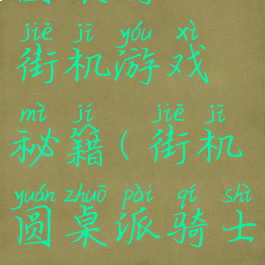 jiē jī yóu xì
街机游戏
mì jí ( jiē jī
秘籍(街机
yuán zhuō pài qí shì
圆桌派骑士